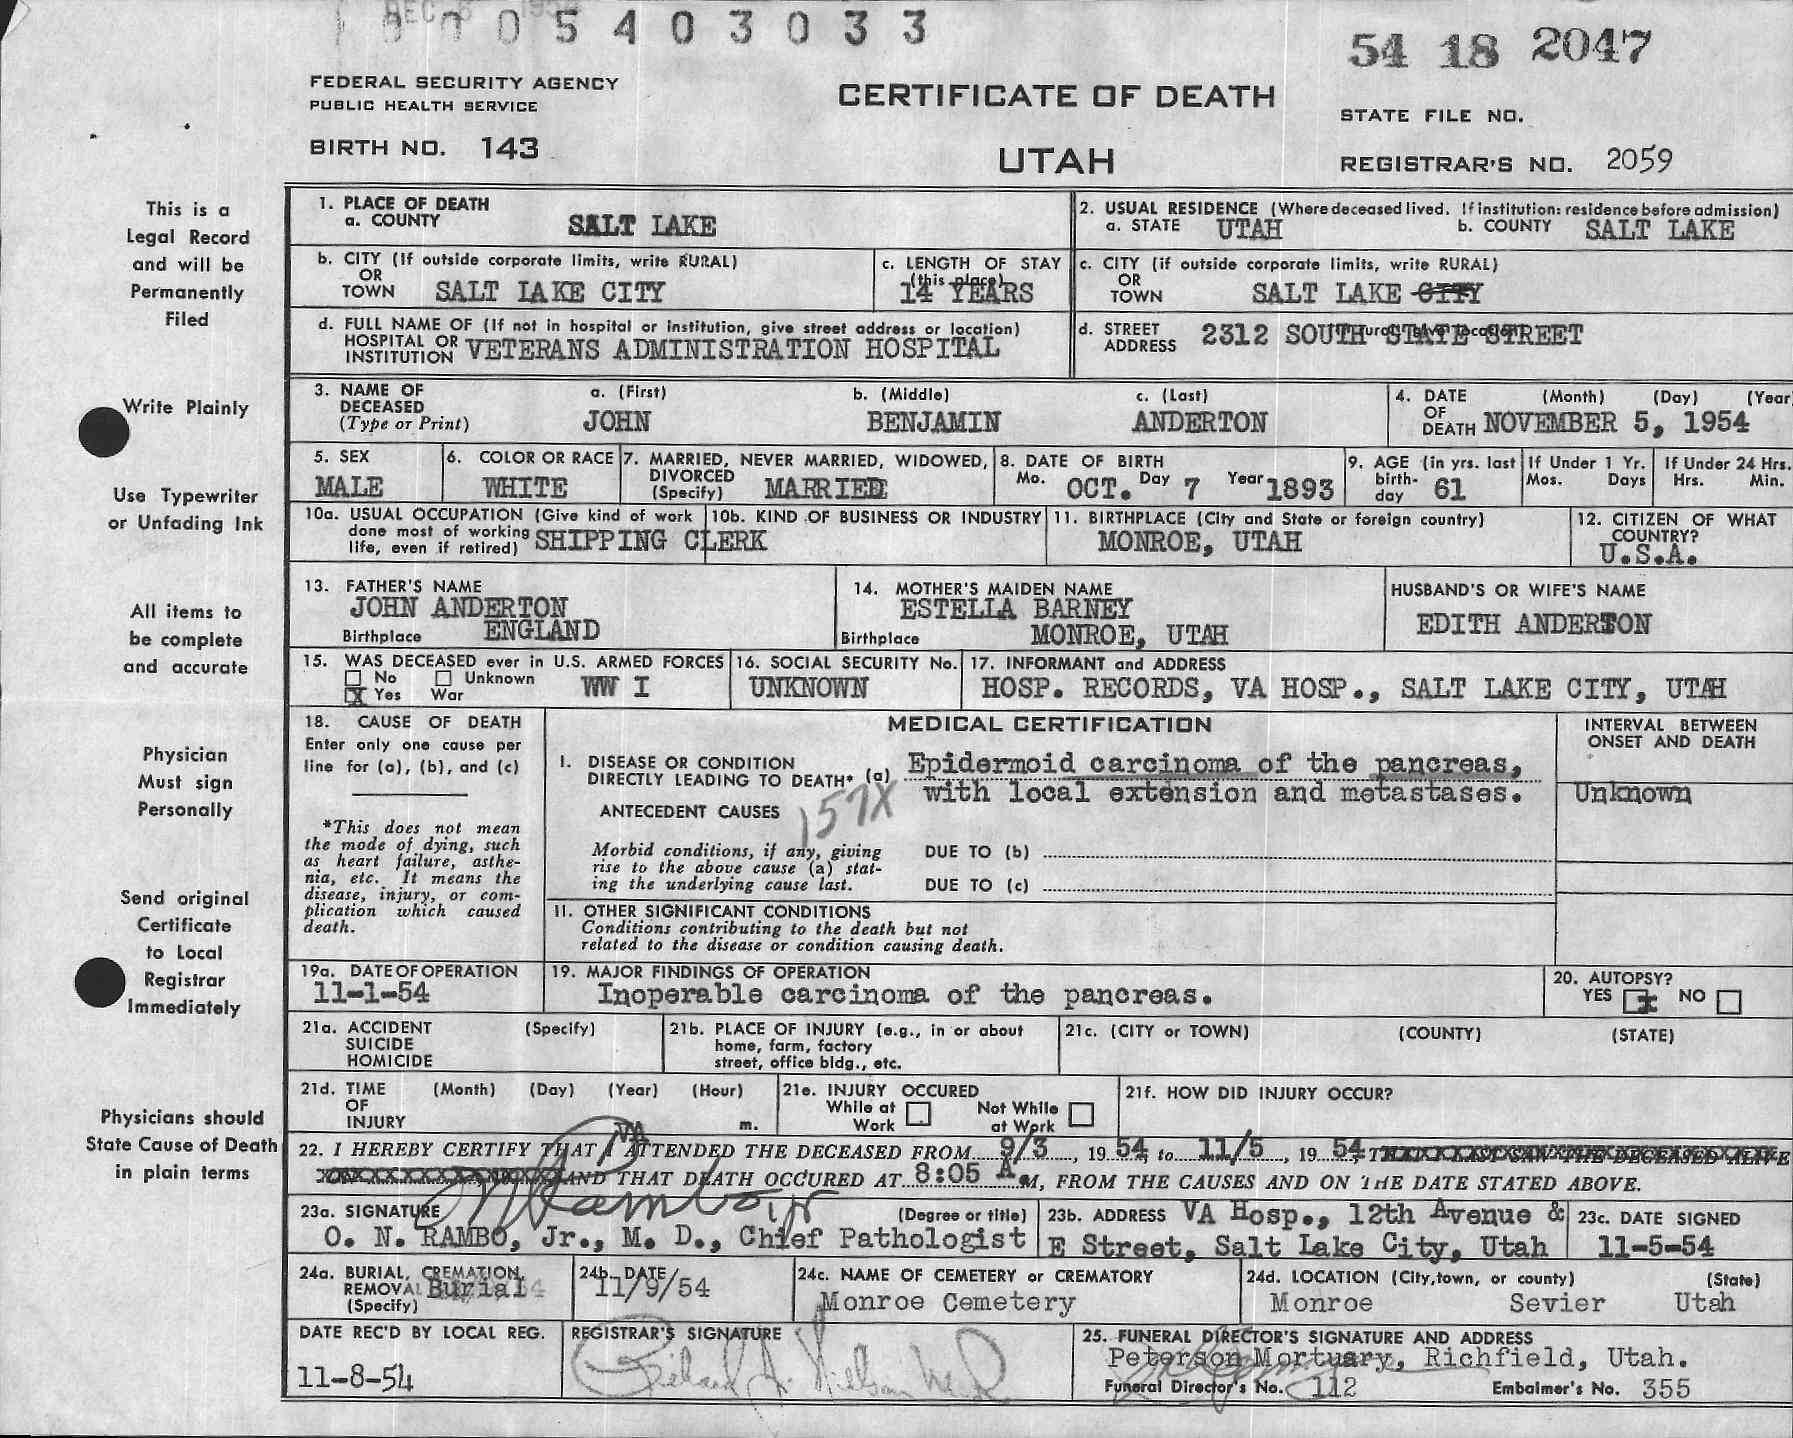 0 0 5 4 0 3 0 3 3
54 18 2047
FEDERAL SECURITY AGENCY
PUBLIC HEALTH SERVICE
CERTIFICATE OF DEATH
STATE FILE NO.
BIRTH NO. 143
UTAH
REGISTRAR'S NO. 2059
This is a
Legal Record
and will be
Permanently
Filed
Write Plainly
Use Typewriter
or Unfading Ink
All items to
be complete
and accurate
Physician
Must sign
Personally
Send original
Certificate
to Local
Registrar
Immediately
Physicians should
State Cause of Death
in plain terms
1. PLACE OF DEATH
a. COUNTY SALT LAKE
2. USUAL RESIDENCE (Where deceased lived. If institution: residence before admission)
a. STATE UTAH b. COUNTY SALT LAKE
b. CITY (If outside corporate limits, write RURAL)
OR
TOWN SALT LAKE CITY
c. LENGTH OF STAY
(this place)
14 YEARS
c. CITY (if outside corporate limits, write RURAL)
OR
TOWN SALT LAKE CITY
d. FULL NAME OF (If not in hospital or institution, give street address or location)
HOSPITAL OR
INSTITUTION VETERANS ADMINISTRATION HOSPITAL
d. STREET
ADDRESS 2312 SOUTH STATE STREET
3. NAME OF
DECEASED
(Type or Print)
a. (First)
JOHN
b. (Middle)
BENJAMIN
c. (Last)
ANDERTON
4. DATE
OF
DEATH
(Month) (Day) (Year
NOVEMBER 5, 1954
5. SEX
MALE
6. COLOR OR RACE
WHITE
7. MARRIED, NEVER MARRIED, WIDOWED,
DIVORCED
(Specify) MARRIED
8. DATE OF BIRTH
Mo. OCT. Day 7 Year 1893
9. AGE (in yrs. last
birth-
day 61
If Under 1 Yr.
Mos. Days
If Under 24 Hrs.
Hrs. Min.
10a. USUAL OCCUPATION (Give kind of work
done most of working
life, even if retired) SHIPPING CLERK
10b. KIND OF BUSINESS OR INDUSTRY
11. BIRTHPLACE (City and State or foreign country)
MONROE, UTAH
12. CITIZEN OF WHAT
COUNTRY?
U.S.A.
13. FATHER'S NAME
JOHN ANDERTON
Birthplace ENGLAND
14. MOTHER'S MAIDEN NAME
ESTELLA BARNEY
Birthplace MONROE, UTAH
HUSBAND'S OR WIFE'S NAME
EDITH ANDERTON
15. WAS DECEASED ever in U.S. ARMED FORCES
No Unknown
X Yes War WW I
16. SOCIAL SECURITY No.
UNKNOWN
17. INFORMANT and ADDRESS
HOSP. RECORDS, VA HOSP., SALT LAKE CITY, UTAH
18. CAUSE OF DEATH
Enter only one cause per
line for (a), (b), and (c)
*This does not mean
the mode of dying, such
as heart failure, asthe-
nia, etc. It means the
disease, injury, or com-
plication which caused
death.
MEDICAL CERTIFICATION
INTERVAL BETWEEN
ONSET AND DEATH
I. DISEASE OR CONDITION
DIRECTLY LEADING TO DEATH* (a) Epidermoid carcinoma of the pancreas,
with local extension and metastases. Unknown
ANTECEDENT CAUSES
157X
Morbid conditions, if any, giving
rise to the above cause (a) stat-
ing the underlying cause last.
DUE TO (b)
DUE TO (c)
11. OTHER SIGNIFICANT CONDITIONS
Conditions contributing to the death but not
related to the disease or condition causing death.
19a. DATE OF OPERATION
11-1-54
19. MAJOR FINDINGS OF OPERATION
Inoperable carcinoma of the pancreas.
20. AUTOPSY?
YES X NO
21a. ACCIDENT (Specify)
SUICIDE
HOMICIDE
21b. PLACE OF INJURY (e.g., in or about
home, farm, factory
street, office bldg., etc.
21c. (CITY or TOWN) (COUNTY) (STATE)
21d. TIME (Month) (Day) (Year) (Hour)
OF
INJURY m.
21e. INJURY OCCURED
While at Not While
Work at Work
21f. HOW DID INJURY OCCUR?
22. I HEREBY CERTIFY THAT VA ATTENDED THE DECEASED FROM 9/3, 19 54, to 11/5, 19 54, THAT I LAST SAW THE DECEASED ALIVE
AND THAT DEATH OCCURED AT 8:05 A.M, FROM THE CAUSES AND ON THE DATE STATED ABOVE.
23a. SIGNATURE (Degree or title)
ON Rambo Jr
O. N. RAMBO, Jr., M. D., Chief Pathologist
23b. ADDRESS VA Hosp., 12th Avenue &
E Street, Salt Lake City, Utah
23c. DATE SIGNED
11-5-54
24a. BURIAL, CREMATION,
REMOVAL Burial
(Specify)
24b. DATE
11/9/54
24c. NAME OF CEMETERY or CREMATORY
Monroe Cemetery
24d. LOCATION (City, town, or county) (State)
Monroe Sevier Utah
DATE REC'D BY LOCAL REG.
11-8-54
REGISTRAR'S SIGNATURE
25. FUNERAL DIRECTOR'S SIGNATURE AND ADDRESS
Peterson Mortuary, Richfield, Utah.
Funeral Director's No. 112 Embalmer's No. 355